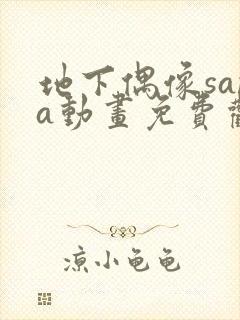 地下偶像sa
a動畫免費
凉小龟龟